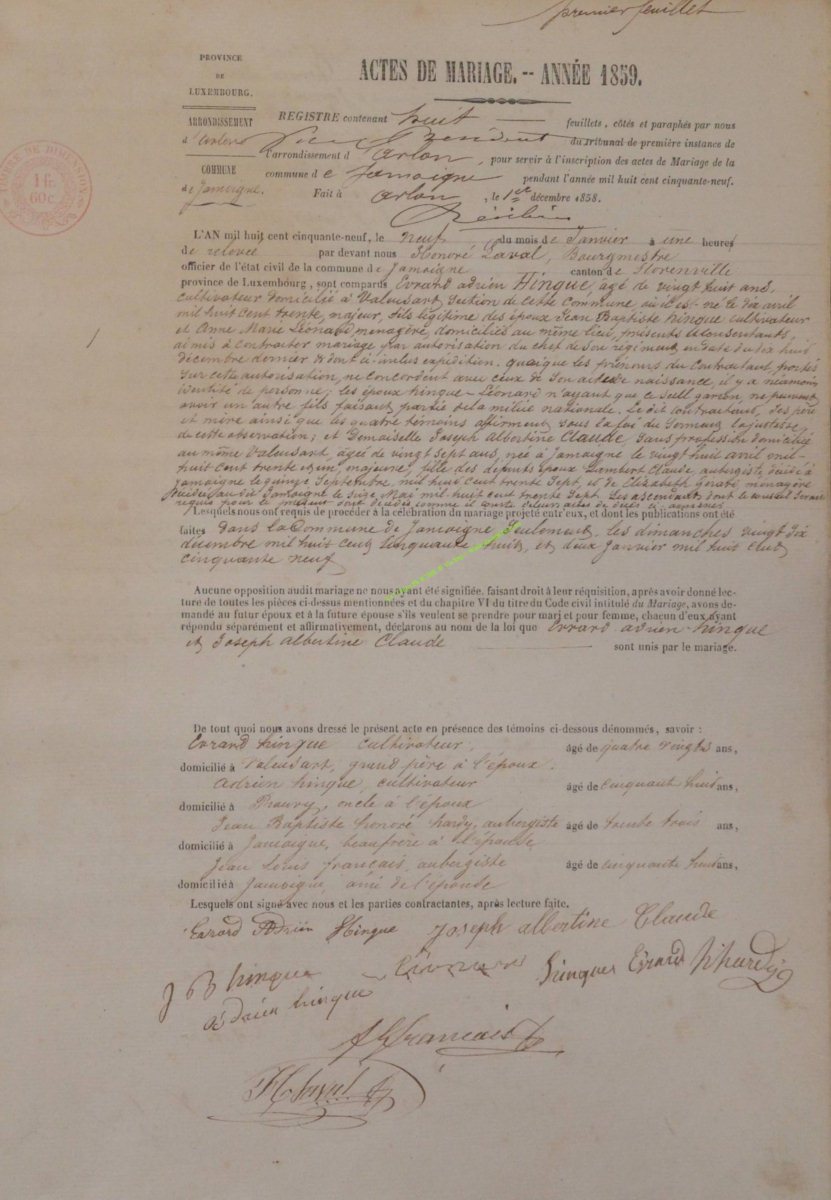 premier feuillet
PROVINCE
DE
LUXEMBOURG.
ACTES DE MARIAGE. -- ANNÉE 1859.
ARRONDISSEMENT
d'arlon
COMMUNE
de Jamoigne.
TIMBRE DE DIMENSION
1 fr.
60 c.
REGISTRE contenant huit feuillets, côtés et paraphés par nous
Vice Président du tribunal de première instance de
l'arrondissement d'arlon, pour servir à l'inscription des actes de Mariage de la
commune de Jamoigne pendant l'année mil huit cent cinquante-neuf.
Fait à arlon, le 1er décembre 1858.
L'AN mil huit cent cinquante-neuf, le neuf du mois de Janvier à une heures
de relevée par devant nous Honoré Laval, Bourgmestre
officier de l'état civil de la commune de Jamoigne canton de Florenville
province de Luxembourg, sont comparus Evrard adrien Hinque, agé de vingt huit ans,
cultivateur domicilié à Valensart, section de cette commune où il est né le dix avril
mil huit cent trente, majeur, fils légitime des époux Jean Baptiste hinque cultivateur
et Anne Marie Léonard menagère, domiciliés au même lieu, présents et consentants,
admis à contracter mariage par autorisation du chef de son régiment, en date du dix huit
décembre dernier et dont ci-inclus expédition. quoique les prénoms du contractant, portés
sur cette autorisation, ne concordent avec ceux de son acte de naissance, il y a néanmoins
identité de personne; les époux hinque-Léonard n'ayant que ce seul garçon, ne peuvent
avoir un autre fils faisant partie de la milice nationale. Le dit contractant, des père
et mère ainsi que les quatre témoins affirment sous la foi du serment la justesse
de cette observation; et Demoiselle Joseph Albertine Claude sans profession domiciliée
au même Valensart, agée de vingt sept ans, née à Jamoigne le vingt huit avril mil-
huit cent trente et un, majeure, fille des défunts époux Lambert Claude, aubergiste, décédé à
Jamoigne le quinze Septembre, mil huit cent trente sept, et de Elizabeth Gérard menagère
décédée au dit Jamoigne le seize Mai mil huit cent trente sept. Les ascendants, dont le conseil serait
requis pour le présent sont décédés comme il conste de leurs actes de décès ci-
Lesquels nous ont requis de procéder à la célébration du mariage projeté entr'eux, et dont les publications ont été
faites dans la Commune de Jamoigne seulement, les dimanches vingt six
décembre mil huit cent cinquante huit, et deux Janvier mil huit cent
cinquante neuf
Aucune opposition audit mariage ne nous ayant été signifiée, faisant droit à leur réquisition, après avoir donné lec-
ture de toutes les pièces ci-dessus mentionnées et du chapitre VI du titre du Code civil intitulé du Mariage, avons de-
mandé au futur époux et à la future épouse s'ils veulent se prendre pour mari et pour femme, chacun d'eux ayant
répondu séparément et affirmativement, déclarons au nom de la loi que Evrard adrien hinque
et Joseph Albertine Claude sont unis par le mariage.
De tout quoi nous avons dressé le présent acte en présence des témoins ci-dessous dénommés, savoir :
Evrard hinque cultivateur, âgé de quatre vingts ans,
domicilié à Valensart, grand père à l'époux.
Adrien hinque, cultivateur âgé de cinquante huit ans,
domicilié à Prouvy, oncle à l'époux
Jean Baptiste honoré hardy, aubergiste âgé de trente trois ans,
domicilié à Jamoigne, beaufrère à l'épouse
Jean Louis français, aubergiste âgé de cinquante huit ans,
domicilié à Jamoigne, ami de l'épouse
Lesquels ont signé avec nous et les parties contractantes, après lecture faite.
Evrard Adrien Hinque Joseph Albertine Claude
J B hinque Léonard hinques Evrard h hardy
adrien hinque
JL francais
H Laval